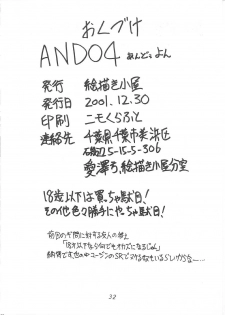 おくづけ
AND04 あんどぅよん
発行 絵描き小屋
発行日 2001.12.30
印刷 ニモくらぶと
連絡先 千葉県千葉市美浜区
5-15-5-306
愛澤弓、絵描き小屋分室
18歳以下は買っちゃ駄目!
その他色々勝手にやっちゃ駄目!
32